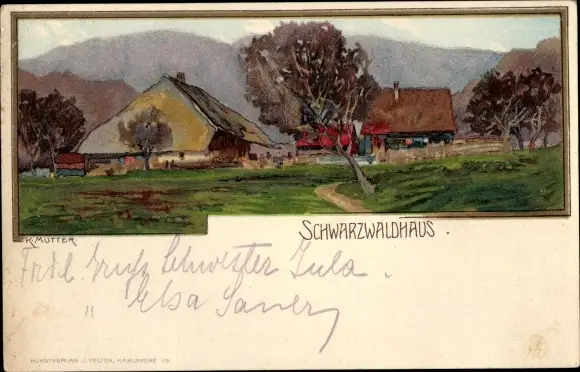 K. MUTTER.
SCHWARZWALDHAUS.
Frdl. Gruß Schwester Jula.
" Elsa Sauer
KUNSTVERLAG J. VELTEN, KARLSRUHE I/B